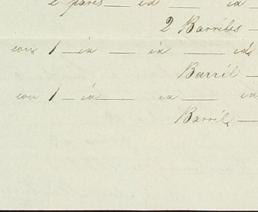 2 pares — id — id
2 Barriles —
con 1 — id — id — id
Barril —
con 1 — id — id — id
Barril —